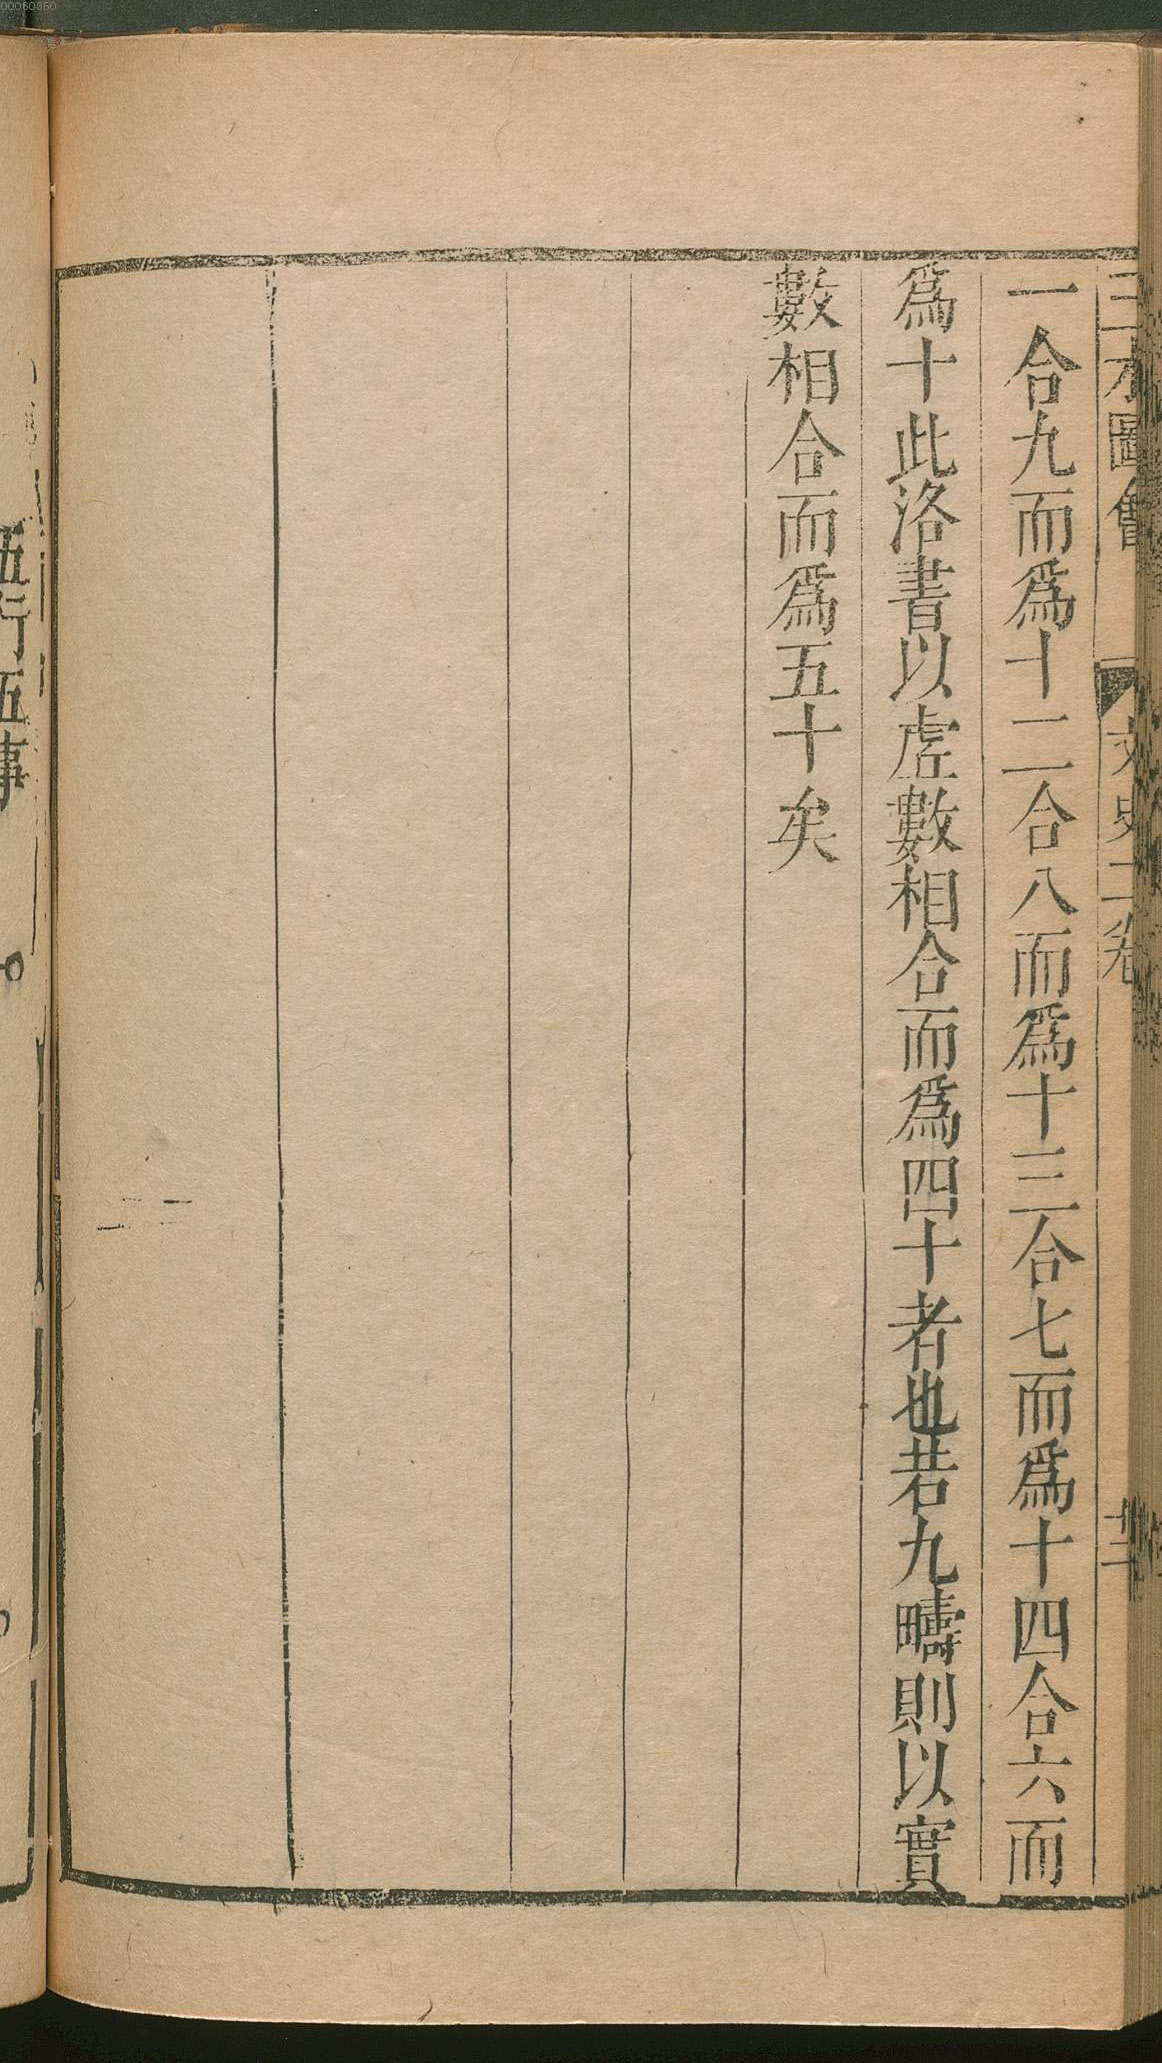 三才圖會 文史二卷 十三
一合九而爲十二合八而爲十三合七而爲十四合六而
爲十此洛書以虛數相合而爲四十者也若九疇則以實
數相合而爲五十矣
五行五事
00060350